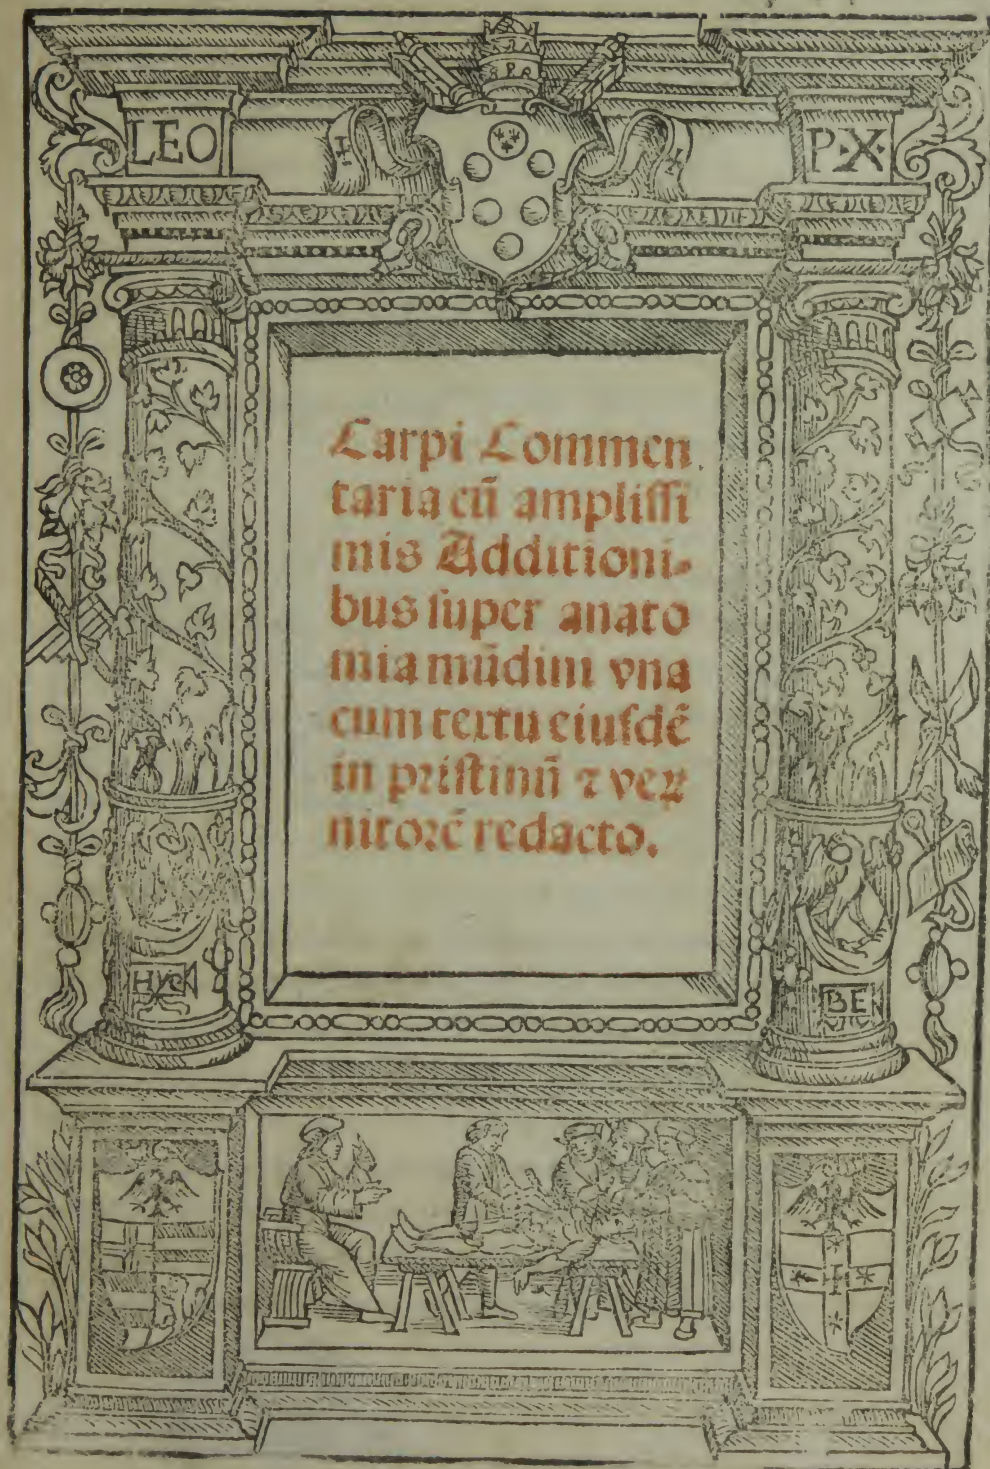 LEO
P·X·
Carpi Commen
taria cū ampliſſi
mis Additioni⸗
bus ſuper anato
mia mūdini vna
cum textu eiuſdē
in priſtinū ⁊ veꝝ
nitorē redacto.
BE